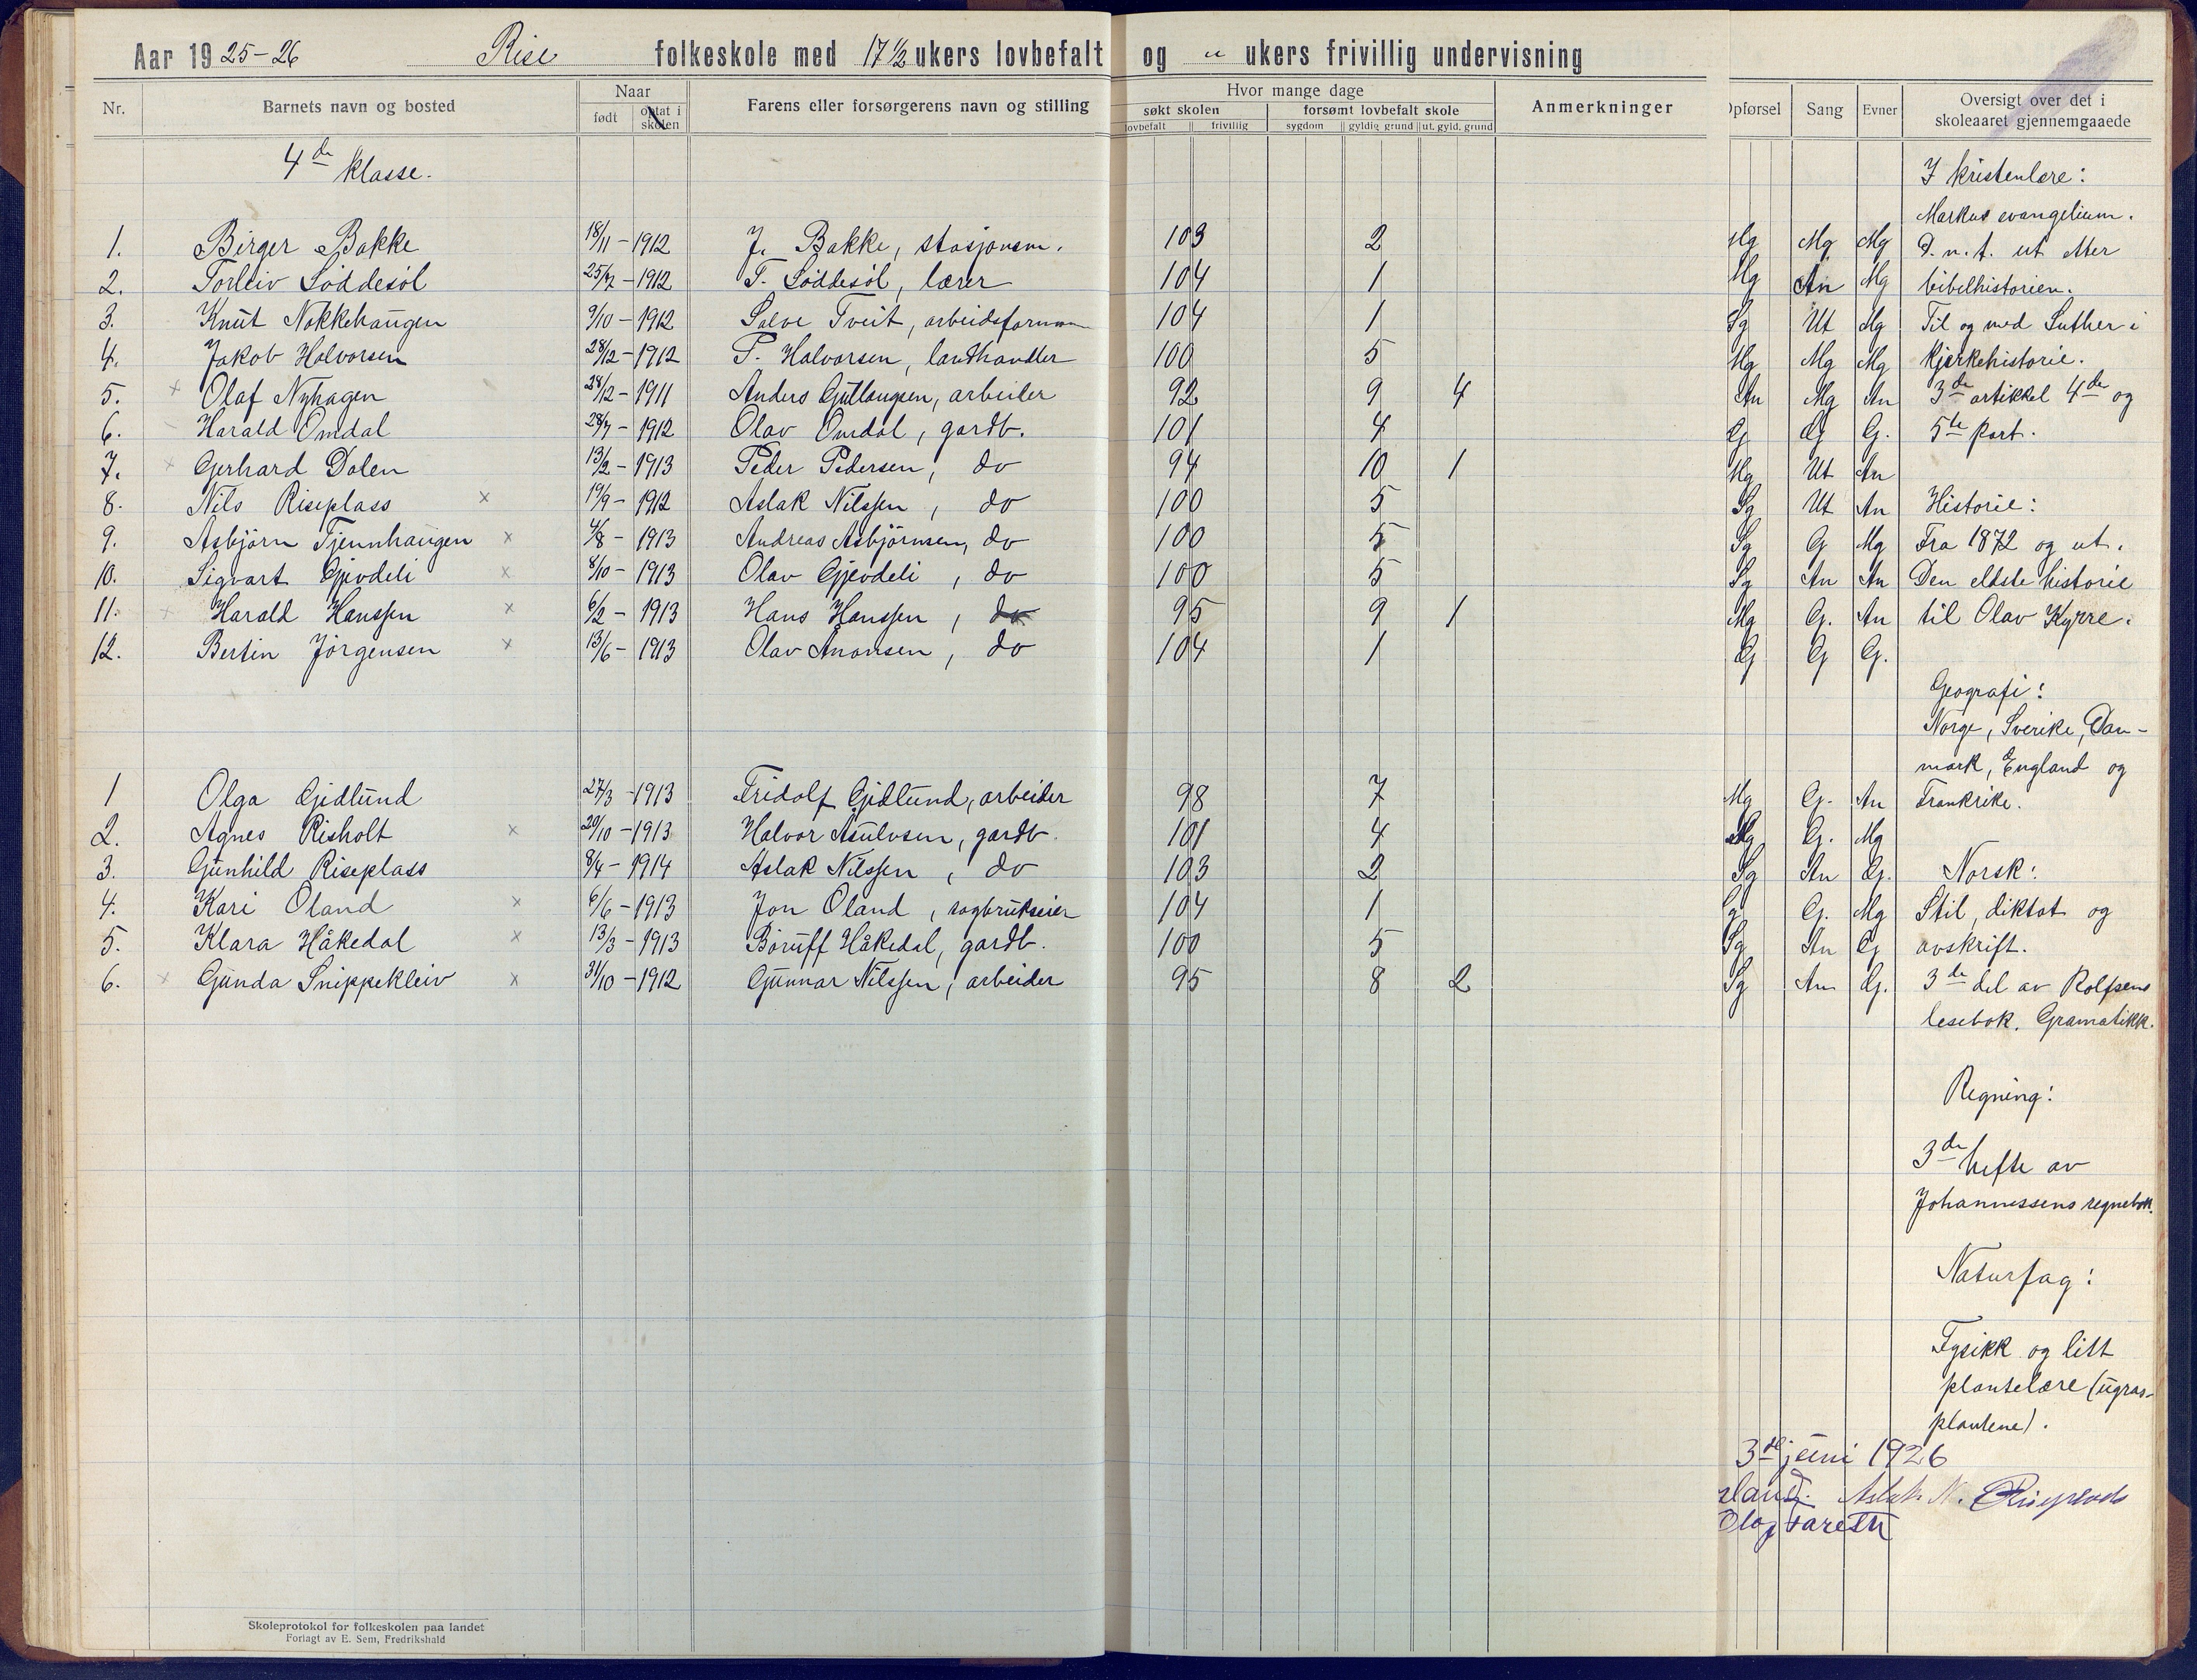 Aar 1925-26 Rise folkeskole med 17 1/2 ukers lovbefalt og " ukers frivillig undervisning
Nr. Barnets navn og bosted Naar født optat i skolen Farens eller forsørgerens navn og stilling Hvor mange dage søkt skolen lovbefalt frivillig forsømt lovbefalt skole sygdom gyldig grund ut. gyld. grund Anmerkninger Opførsel Sang Evner Oversigt over det i skoleaaret gjennemgaaede
4de klasse.
I kristenlære:
Markus evangelium.
1. Birger Bakke 18/11 - 1912 J. Bakke, stasjonsm. 103 2 Mg Mg Mg D.n.t. ut etter
2. Torleiv Løddesøl 25/7 - 1912 T. Løddesøl, lærer 104 1 Mg An Mg bibelhistorien.
3. Knut Nakkehaugen 9/10 - 1912 Salve Tveit, arbeidsformann 104 1 Sg Ut Mg Til og med Luther i
4. Jakob Halvorsen 28/12 - 1912 P. Halvorsen, landhandler 100 5 Mg Mg Mg kjerkehistorie.
5. x Olaf Nyhagen 28/12 - 1911 Anders Gullaugsen, arbeider 92 9 4 An Mg An 3de artikkel 4de og
6. Harald Omdal 28/7 - 1912 Olav Omdal, gardb. 101 4 G G G. 5te part.
7. x Gerhard Dalen 13/2 - 1913 Peder Pedersen, do 94 10 1 Mg Ut An
8. Nils Riseplass x 19/9 - 1912 Aslak Nilssen, do 100 5 Sg Ut An Historie:
9. Asbjørn Tjennhaugen x 4/8 - 1913 Andreas Asbjørnsen, do 100 5 Sg G Mg Fra 1872 og ut.
10. Sigvart Gjevdeli x 8/10 - 1913 Olav Gjevdeli, do 100 5 Sg An An Den eldste historie
11. Harald Hanssen x 6/2 - 1913 Hans Hanssen, do 95 9 1 Mg G. An til Olav Kyrre.
12. Bertin Jørgensen x 13/6 - 1913 Olav Anonsen, do 104 1 G G G.
Geografi:
Norge, Sverike, Dan-
mark, England og
1 Olga Gjidlund 27/3 - 1913 Fridolf Gjidlund, arbeider 98 7 Mg G. An Frankrike.
2. Agnes Risholt x 20/10 - 1913 Halvor Asulvsen, gardb. 101 4 Mg G. Mg
3. Gunhild Riseplass 8/4 - 1914 Aslak Nilssen, do 103 2 Sg An G. Norsk:
4. Kari Øland x 6/6 - 1913 Jon Øland, sagbrukseier 104 1 G G. Mg Stil, diktat og
5. Klara Håkedal x 13/3 - 1913 Børuff Håkedal, gardb. 100 5 Sg An G avskrift.
6. x Gunda Snippekleiv x 31/10 - 1912 Gunnar Nilssen, arbeider 95 8 2 Sg An G. 3de del av Rolfsens
lesebok. Gramatikk.
Regning:
3de hefte av
Johannessens regnebok.
Naturfag:
Fysikk og litt
plantelære (ugras-
plantene).
3de juni 1926
land. Aslak N. Riseplads
Olaf
Skoleprotokol for folkeskolen paa landet
Forlagt av E. Sem, Fredrikshald